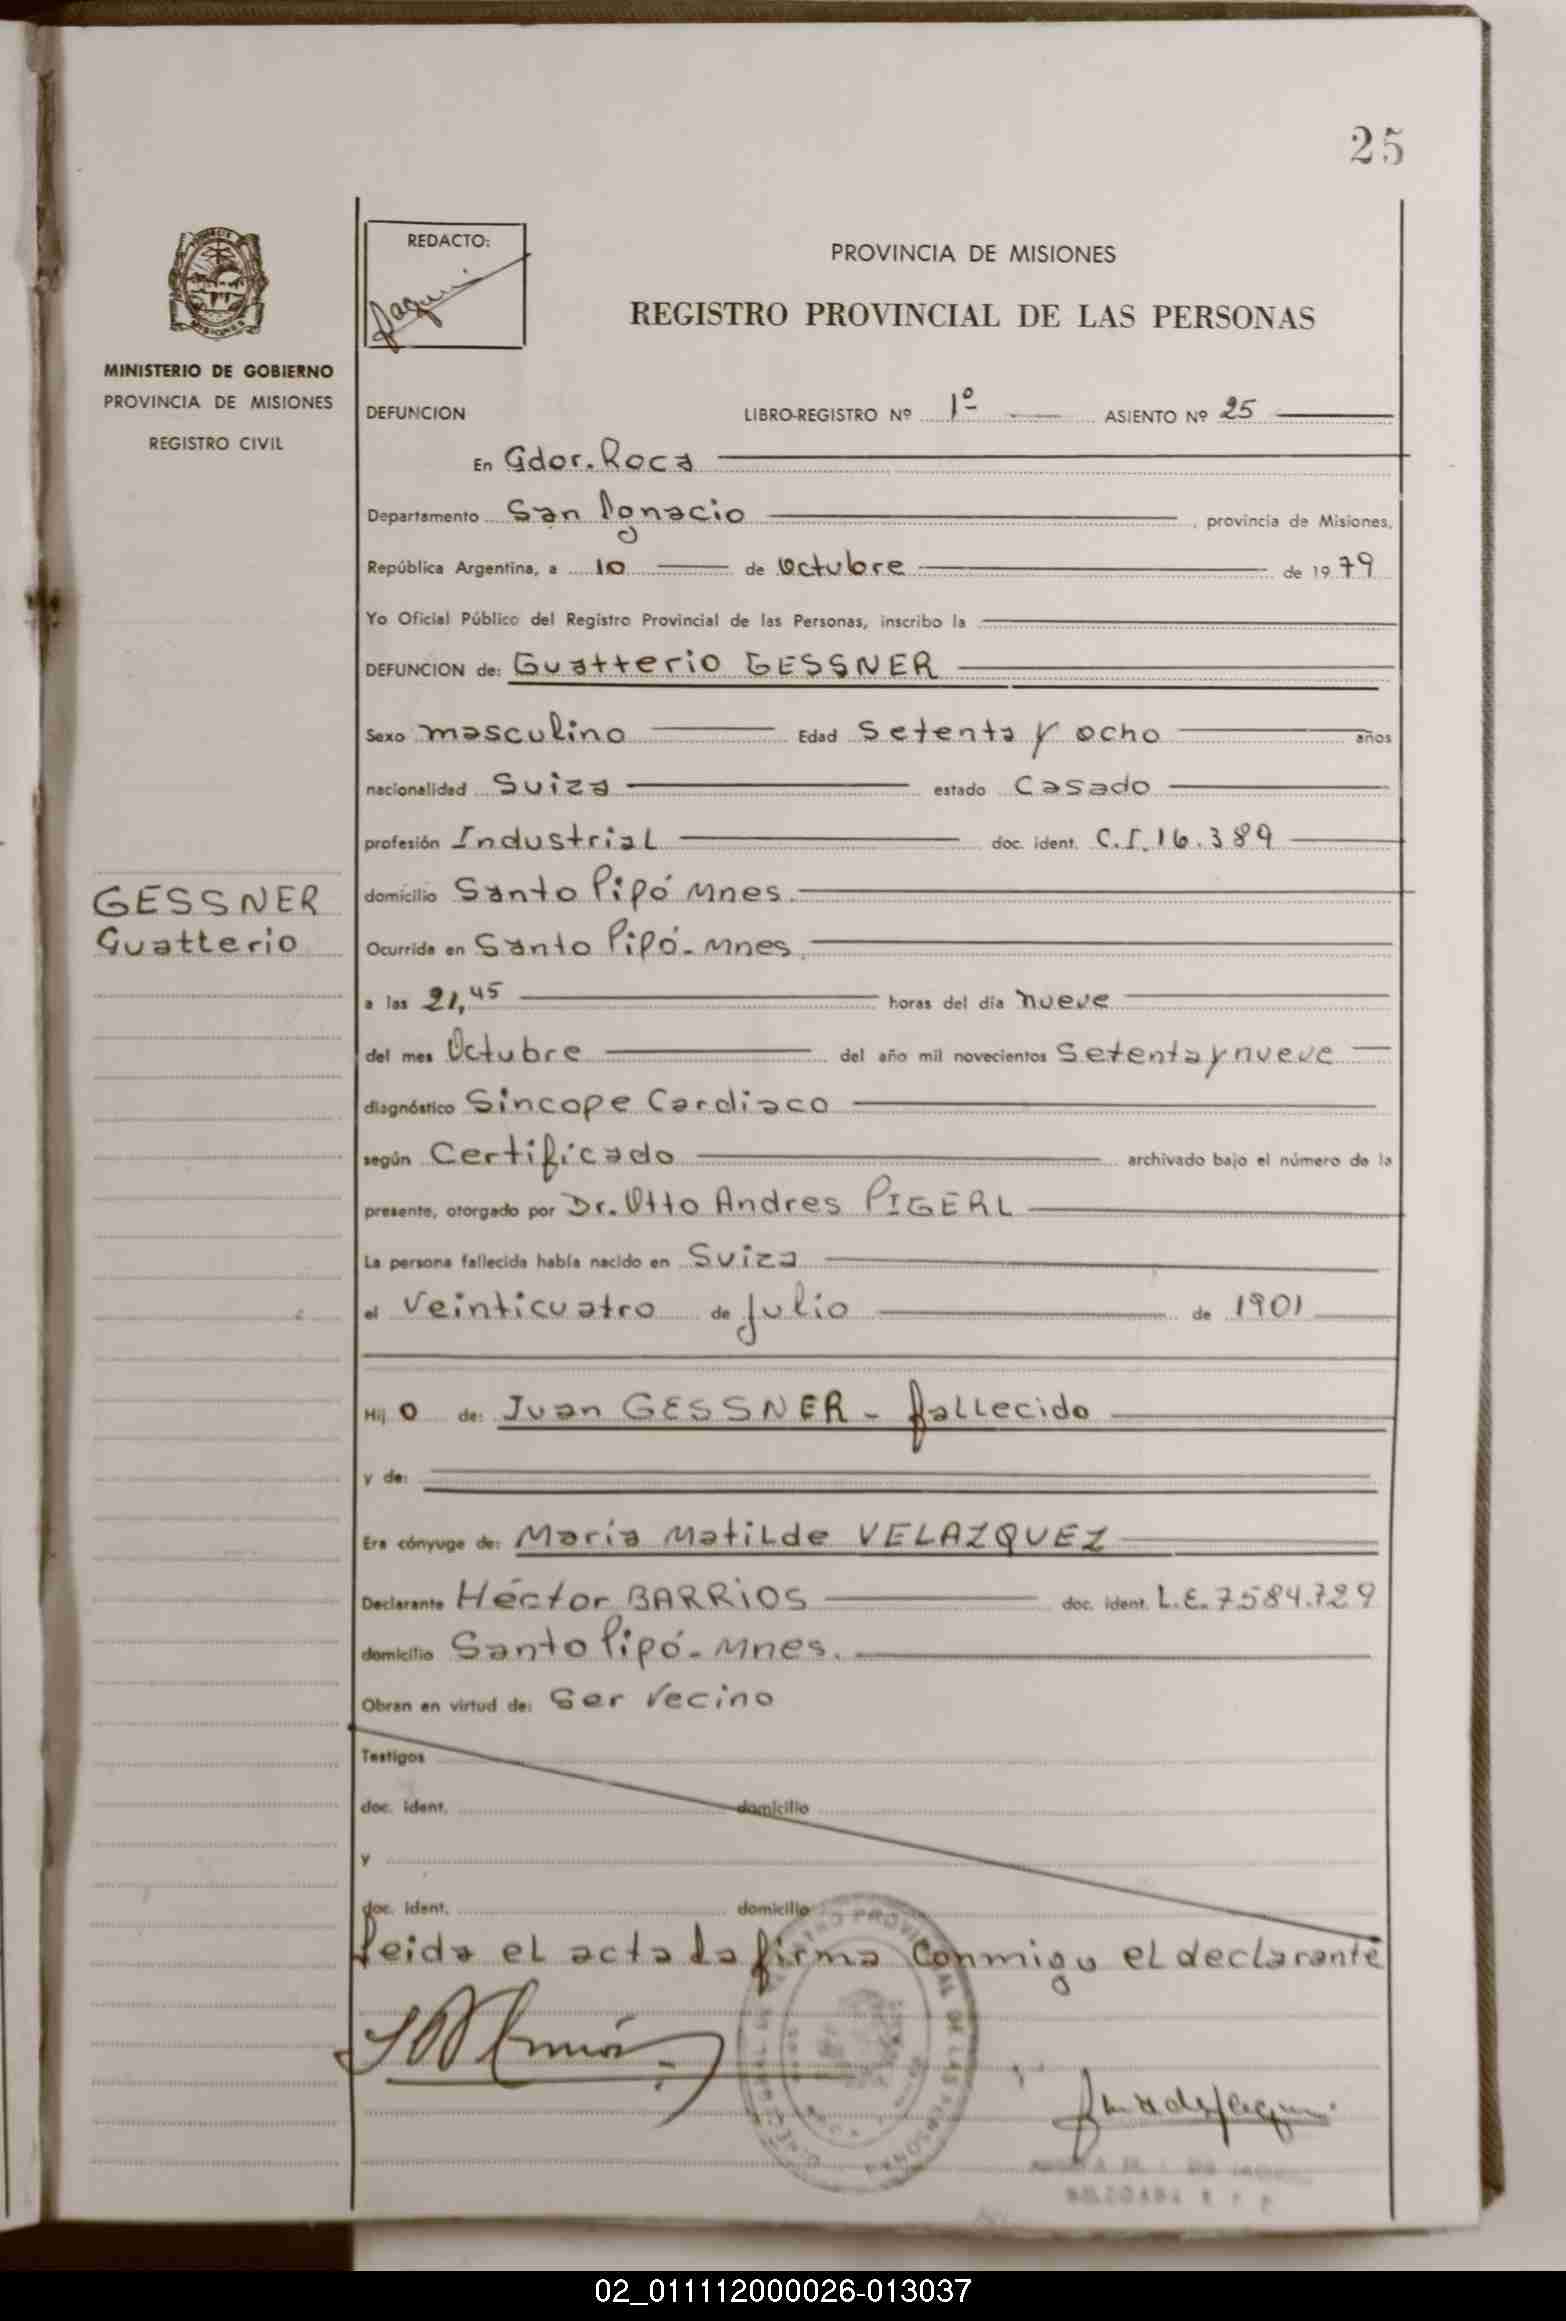 25
REDACTO:
PROVINCIA DE MISIONES
REGISTRO PROVINCIAL DE LAS PERSONAS
MISIONES
MINISTERIO DE GOBIERNO
PROVINCIA DE MISIONES
REGISTRO CIVIL
DEFUNCION LIBRO-REGISTRO Nº 1º ASIENTO Nº 25
En Gdor. Roca
Departamento San Ignacio, provincia de Misiones,
República Argentina, a 10 de Octubre de 1979
Yo Oficial Público del Registro Provincial de las Personas, inscribo la
DEFUNCION de: Guatterio GESSNER
Sexo masculino Edad Setenta y ocho años
nacionalidad Suiza estado Casado
profesión Industrial doc. ident. C.I. 16.389
GESSNER
Guatterio
domicilio Santo Pipó Mnes.
Ocurrida en Santo Pipó-Mnes.
a las 21,45 horas del día nueve
del mes Octubre del año mil novecientos Setenta y nueve
diagnóstico Sincope Cardiaco
según Certificado archivado bajo el número de la
presente, otorgado por Dr. Otto Andres PIGERL
La persona fallecida había nacido en Suiza
el Veinticuatro de Julio de 1901
Hij o de: Juan GESSNER - fallecido
y de:
Era cónyuge de: María Matilde VELAZQUEZ
Declarante Héctor BARRIOS doc. ident. L.E. 7584.729
domicilio Santo Pipó-Mnes.
Obran en virtud de: Ser Vecino
Testigos
doc. ident. domicilio
y
doc. ident. domicilio
Leida el acta la firma Conmigo el declarante
REGISTRO PROVINCIAL DE LAS PERSONAS
02_011112000026-013037